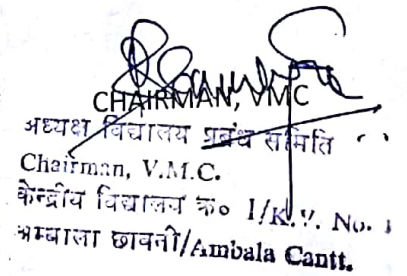 CHAIRMAN, VMC
अध्यक्ष विद्यालय प्रबंध समिति
Chairman, V.M.C.
केन्द्रीय विद्यालय क्र० 1/K.V. No. 1
अम्बाला छावनी/Ambala Cantt.